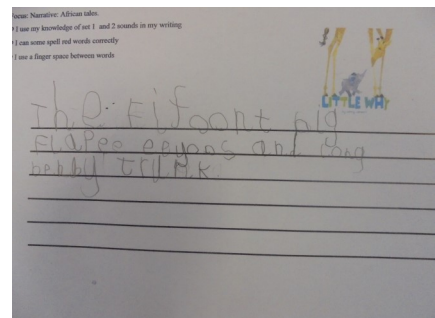 Focus: Narrative: African tales.
I use my knowledge of set 1 and 2 sounds in my writing
I can some spell red words correctly
I use a finger space between words
LITTLE WHY
The Elifoont big
and long
trunk